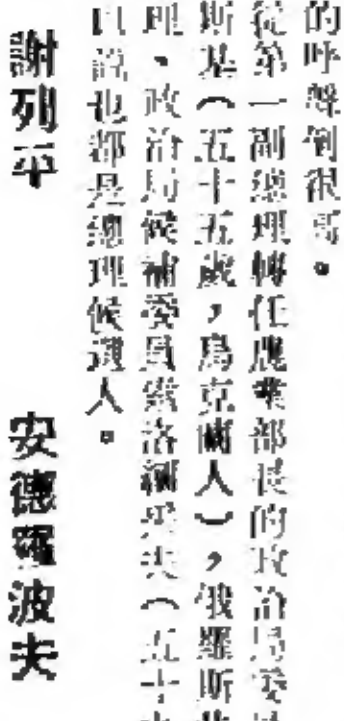 的呼聲倒很高。
從第一副總理轉任農業部長的政治局委
斯基（五十五歲，烏克蘭人），俄羅斯
理、政治局候補委員索洛綿采夫（五十
說也都是總理候選人。
謝列平 安德羅波夫